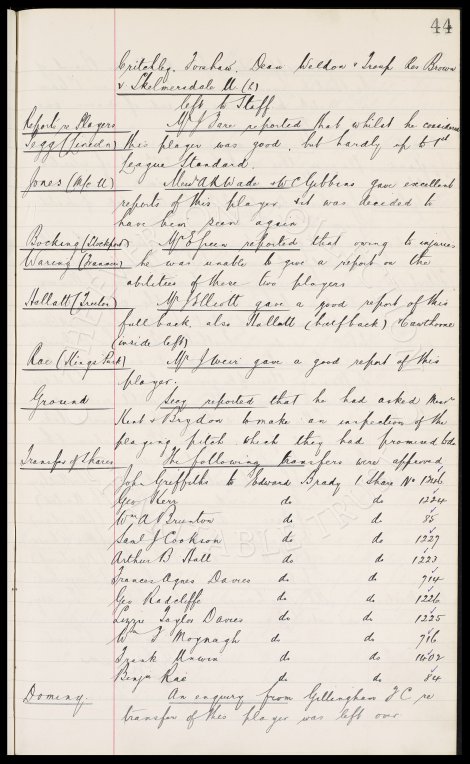 44
Critchley, Forshaw, Dean Weldon & Troup Res Brown
& Skelmersdale U (2)
left to Staff
Reports re Players Mr J Fare reported that whilst he considered
Legg (Lincoln) this player was good, but hardly up to 1st
League Standard.
Jones (M/c U) Messrs A H Wade & W C Gibbins gave excellent
reports of this player & it was decided to
have him seen again
Bocking (Stockport) Mr E Green reported that owing to injuries
Waring (Tranmere) he was unable to give a report on the
abilities of these two players
Hallatt (Mr J Elliott gave a good report of this
full back, also Hallatt (half back) Hawthorne
(inside left)
Rae (Kings Park) Mr J Weir gave a good report of this
player.
Ground Secy reported that he had asked Messrs
Kent & Brydon to make an inspection of the
playing pitch which they had promised to do
Transfer of Shares The following transfers were approved
John Griffiths to Edward Brady 1 Share No 1216
Geo Kerr do do 1224
Wm A Brunton do do 85
Saml J Cookson do do 1227
Arthur B Hall do do 1223
Frances Agnes Davies do do 714
Geo Radcliffe do do 1226
Lizzie Taylor Davies do do 1225
Wm J Moynagh do do 716
Frank Unwin do do 1602
Benjn Rae do do 84
Domeny. An enquiry from Gillingham F C re
transfer of this player was left over